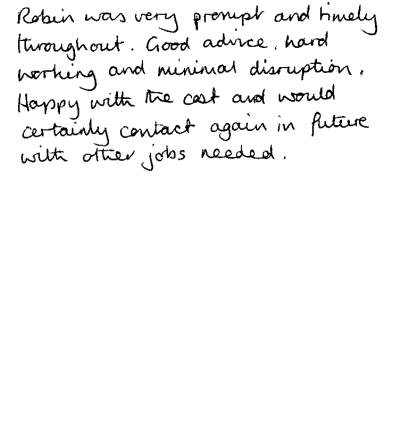 Robin was very prompt and timely
throughout. Good advice, hard
working and minimal disruption.
Happy with the cost and would
certainly contact again in future
with other jobs needed.